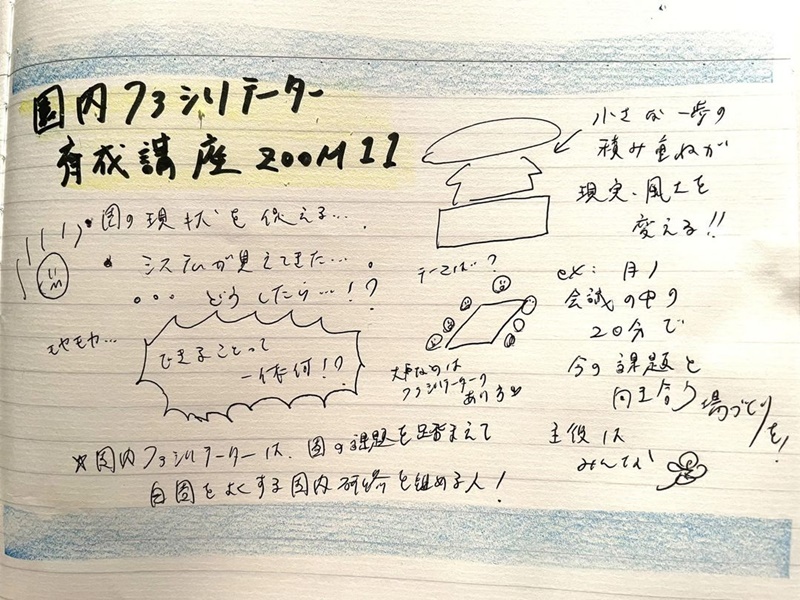 園内ファシリテーター
育成講座 ZOOM 11
・園の現状を伝える…
・システムが見えてきた…。
。。。どうしたら…!?
モヤモヤ…
できることって
一体何!?
小さな一歩の
積み重ねが
現実、風土を
変える!!
テーマは…?
大事なのは
ファシリテーターの
あり方
ex: 月1
会議の中の
20分で
今の課題と
向き合う
場づくりを!
主役は
みんな
☆園内ファシリテーターは、園の課題を踏まえて
自園をよくする園内研修を組める人!